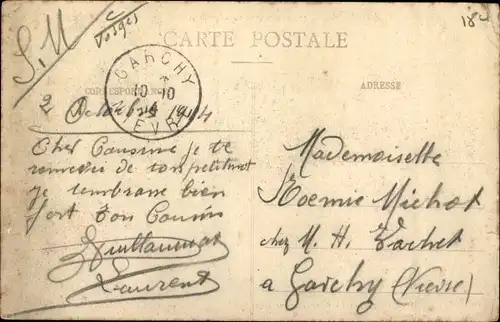 S. M
Vosges
18
CARTE POSTALE
GARCHY
10 10
14
NIÈVRE
CORRESPONDANCE
ADRESSE
2 Octobre 1914
Cher Cousine je te
remercie de ton petit mot
je tembrasse bien
fort Ton Cousin
Guillaumat
Laurent
Mademoiselle
Noemie Michot
chez M. H. Vachet
a Garchy (Nievre)